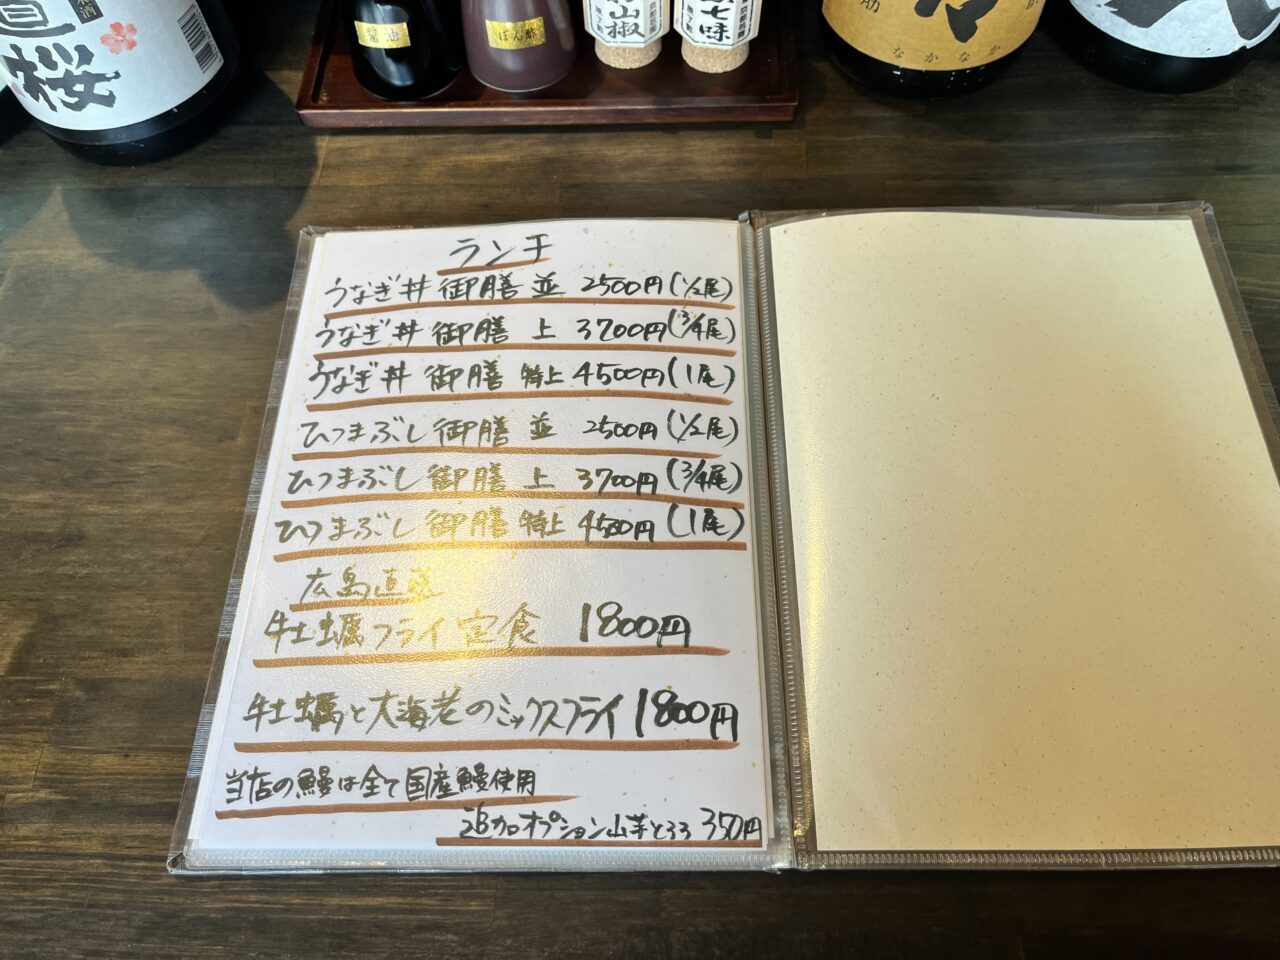 桜
醤油
ぽん酢
山椒
七味
なかなか
ランチ
うなぎ丼 御膳 並 2500円(1/2尾)
うなぎ丼 御膳 上 3700円(3/4尾)
うなぎ丼 御膳 特上 4500円(1尾)
ひつまぶし 御膳 並 2500円(1/2尾)
ひつまぶし 御膳 上 3700円(3/4尾)
ひつまぶし 御膳 特上 4500円(1尾)
広島直
牡蠣フライ定食 1800円
牡蠣と大海老のミックスフライ 1800円
当店の鰻は全て国産鰻使用
追加オプション山芋とろろ 350円